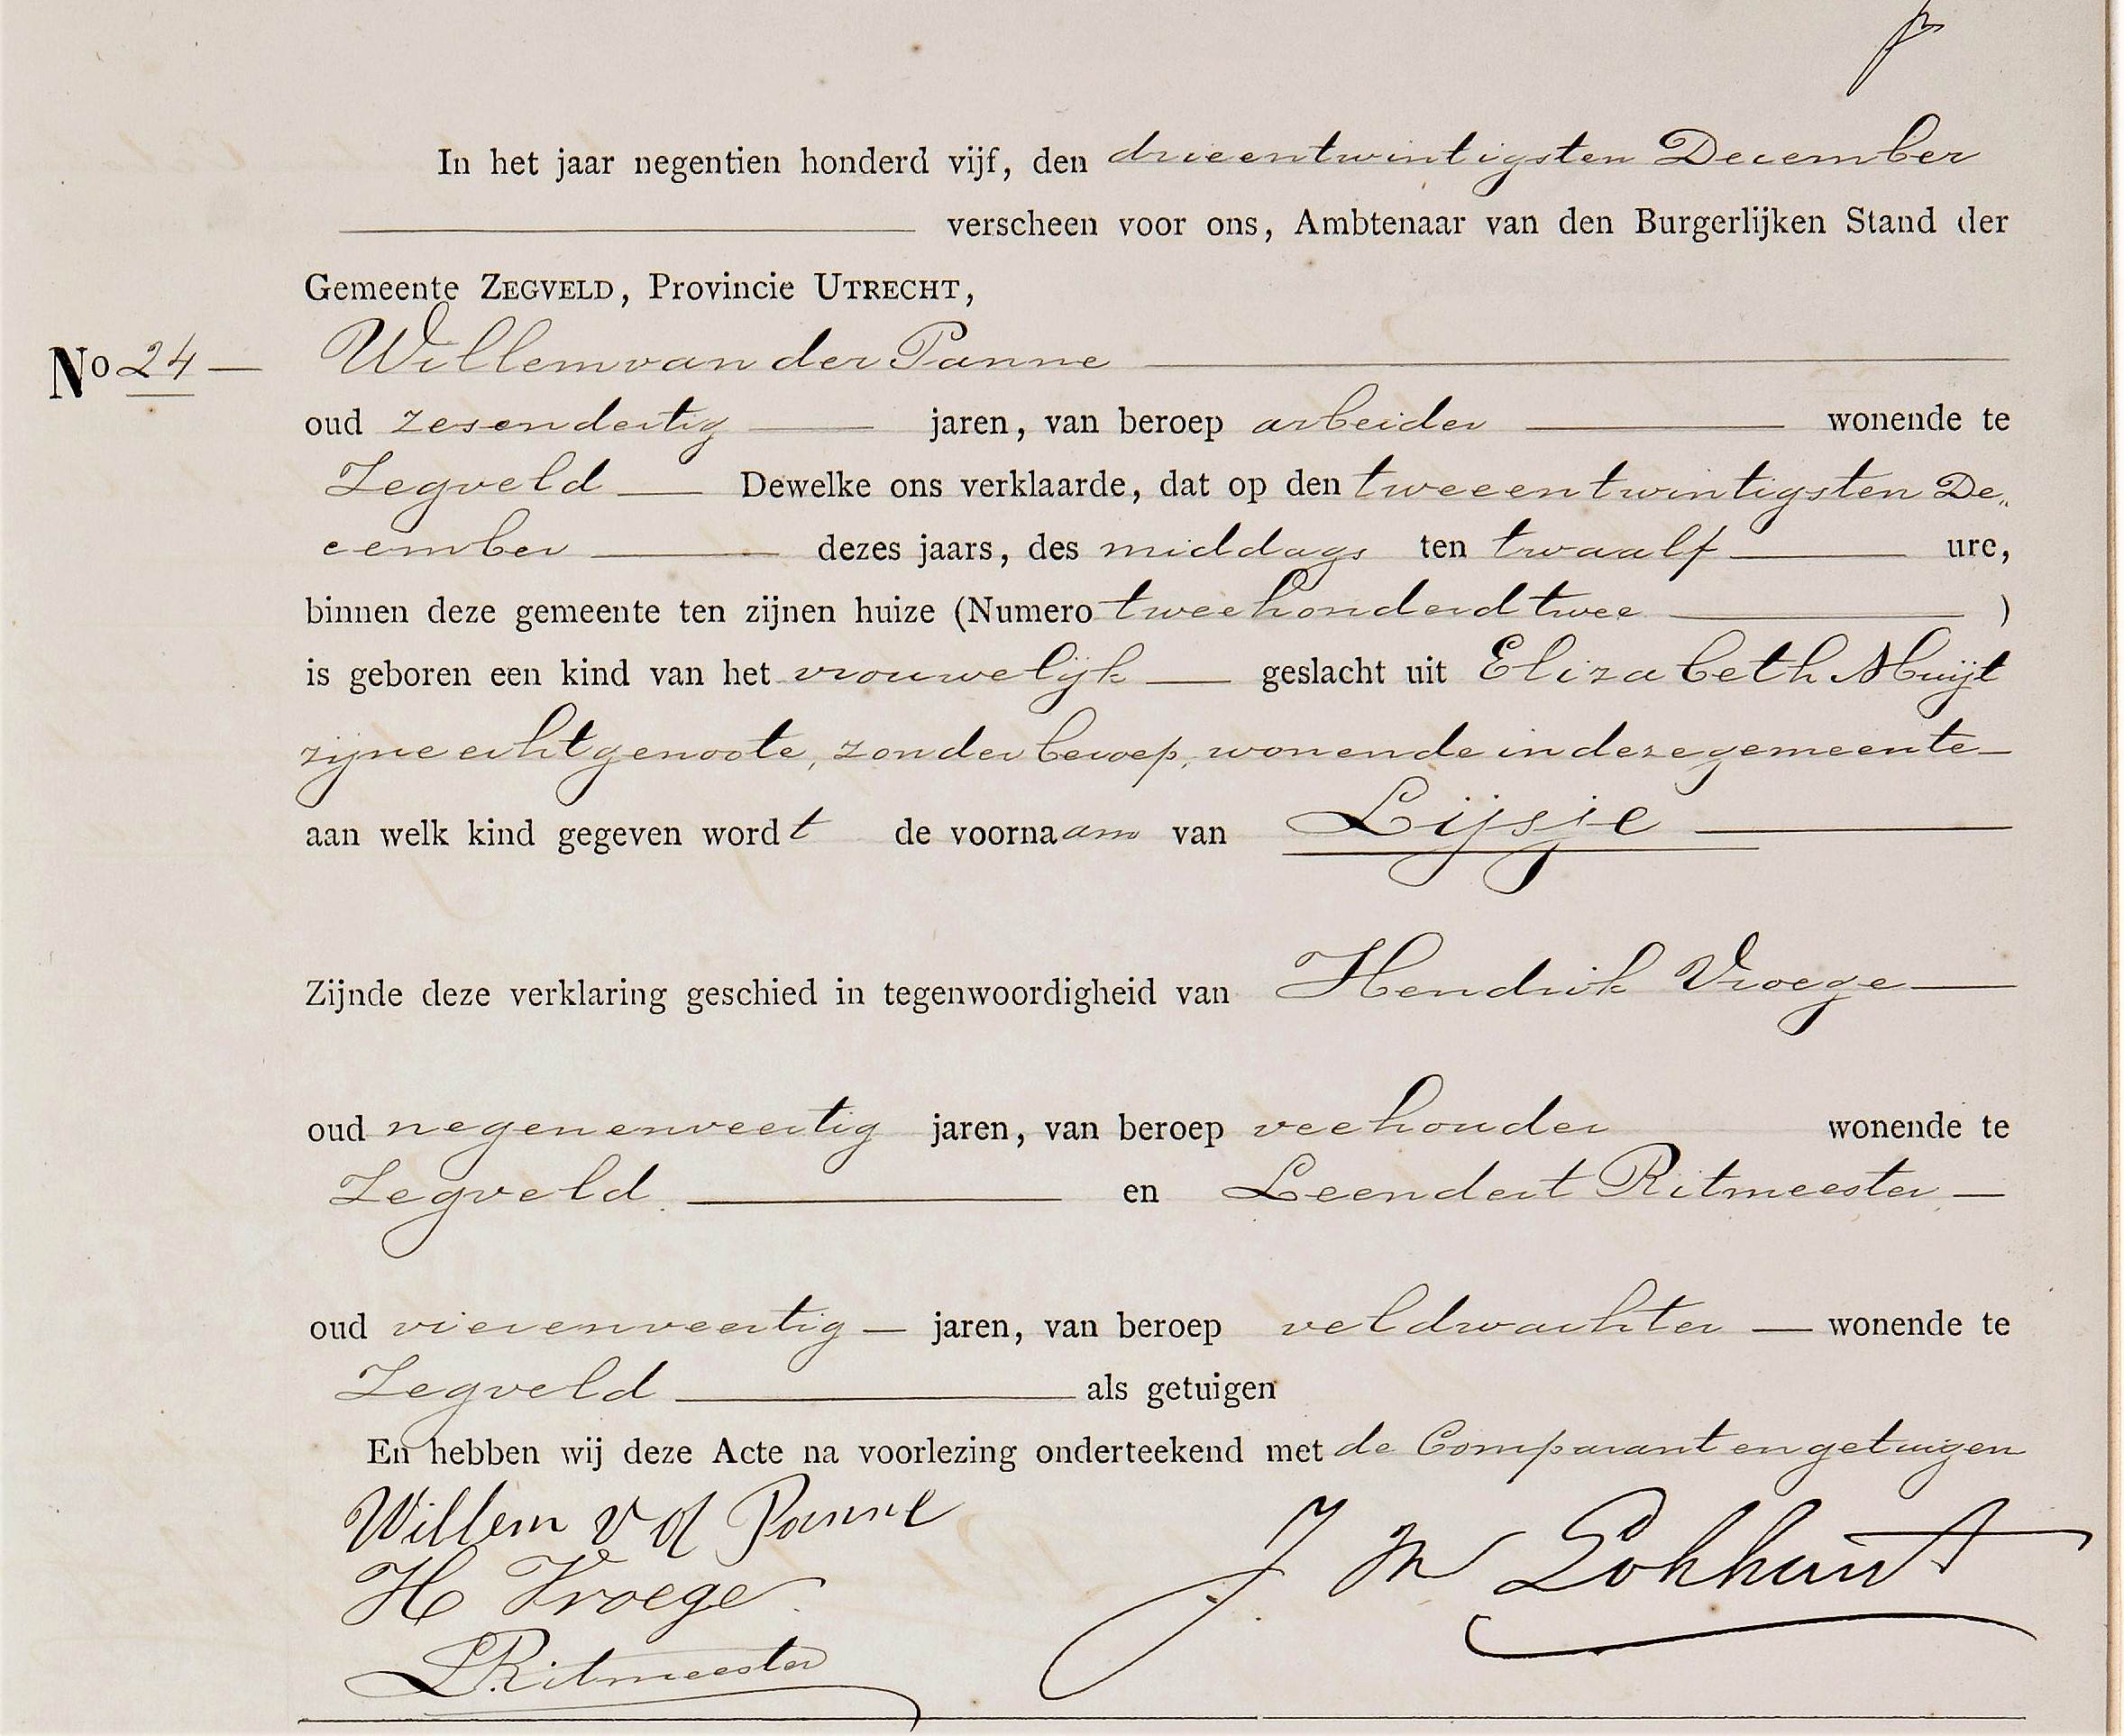 In het jaar negentien honderd vijf, den drieentwintigsten December
verscheen voor ons, Ambtenaar van den Burgerlijken Stand der
Gemeente ZEGVELD, Provincie UTRECHT,
No 24 Willem van der Panne
oud zesendertig jaren, van beroep arbeider wonende te
Zegveld Dewelke ons verklaarde, dat op den tweeentwintigsten De„
cember dezes jaars, des middags ten twaalf ure,
binnen deze gemeente ten zijnen huize (Numero tweehonderd twee )
is geboren een kind van het vrouwelijk geslacht uit Elizabeth Muijt
zijne echtgenoote, zonder beroep, wonende in deze gemeente
aan welk kind gegeven wordt de voornaam van Lijsje
Zijnde deze verklaring geschied in tegenwoordigheid van Hendrik Vroege
oud negenenveertig jaren, van beroep veehouder wonende te
Zegveld en Leendert Ritmeester
oud vierenveertig jaren, van beroep veldwachter wonende te
Zegveld als getuigen
En hebben wij deze Acte na voorlezing onderteekend met de Comparant en getuigen
Willem v d Panne
H Vroege
L. Ritmeester
J M